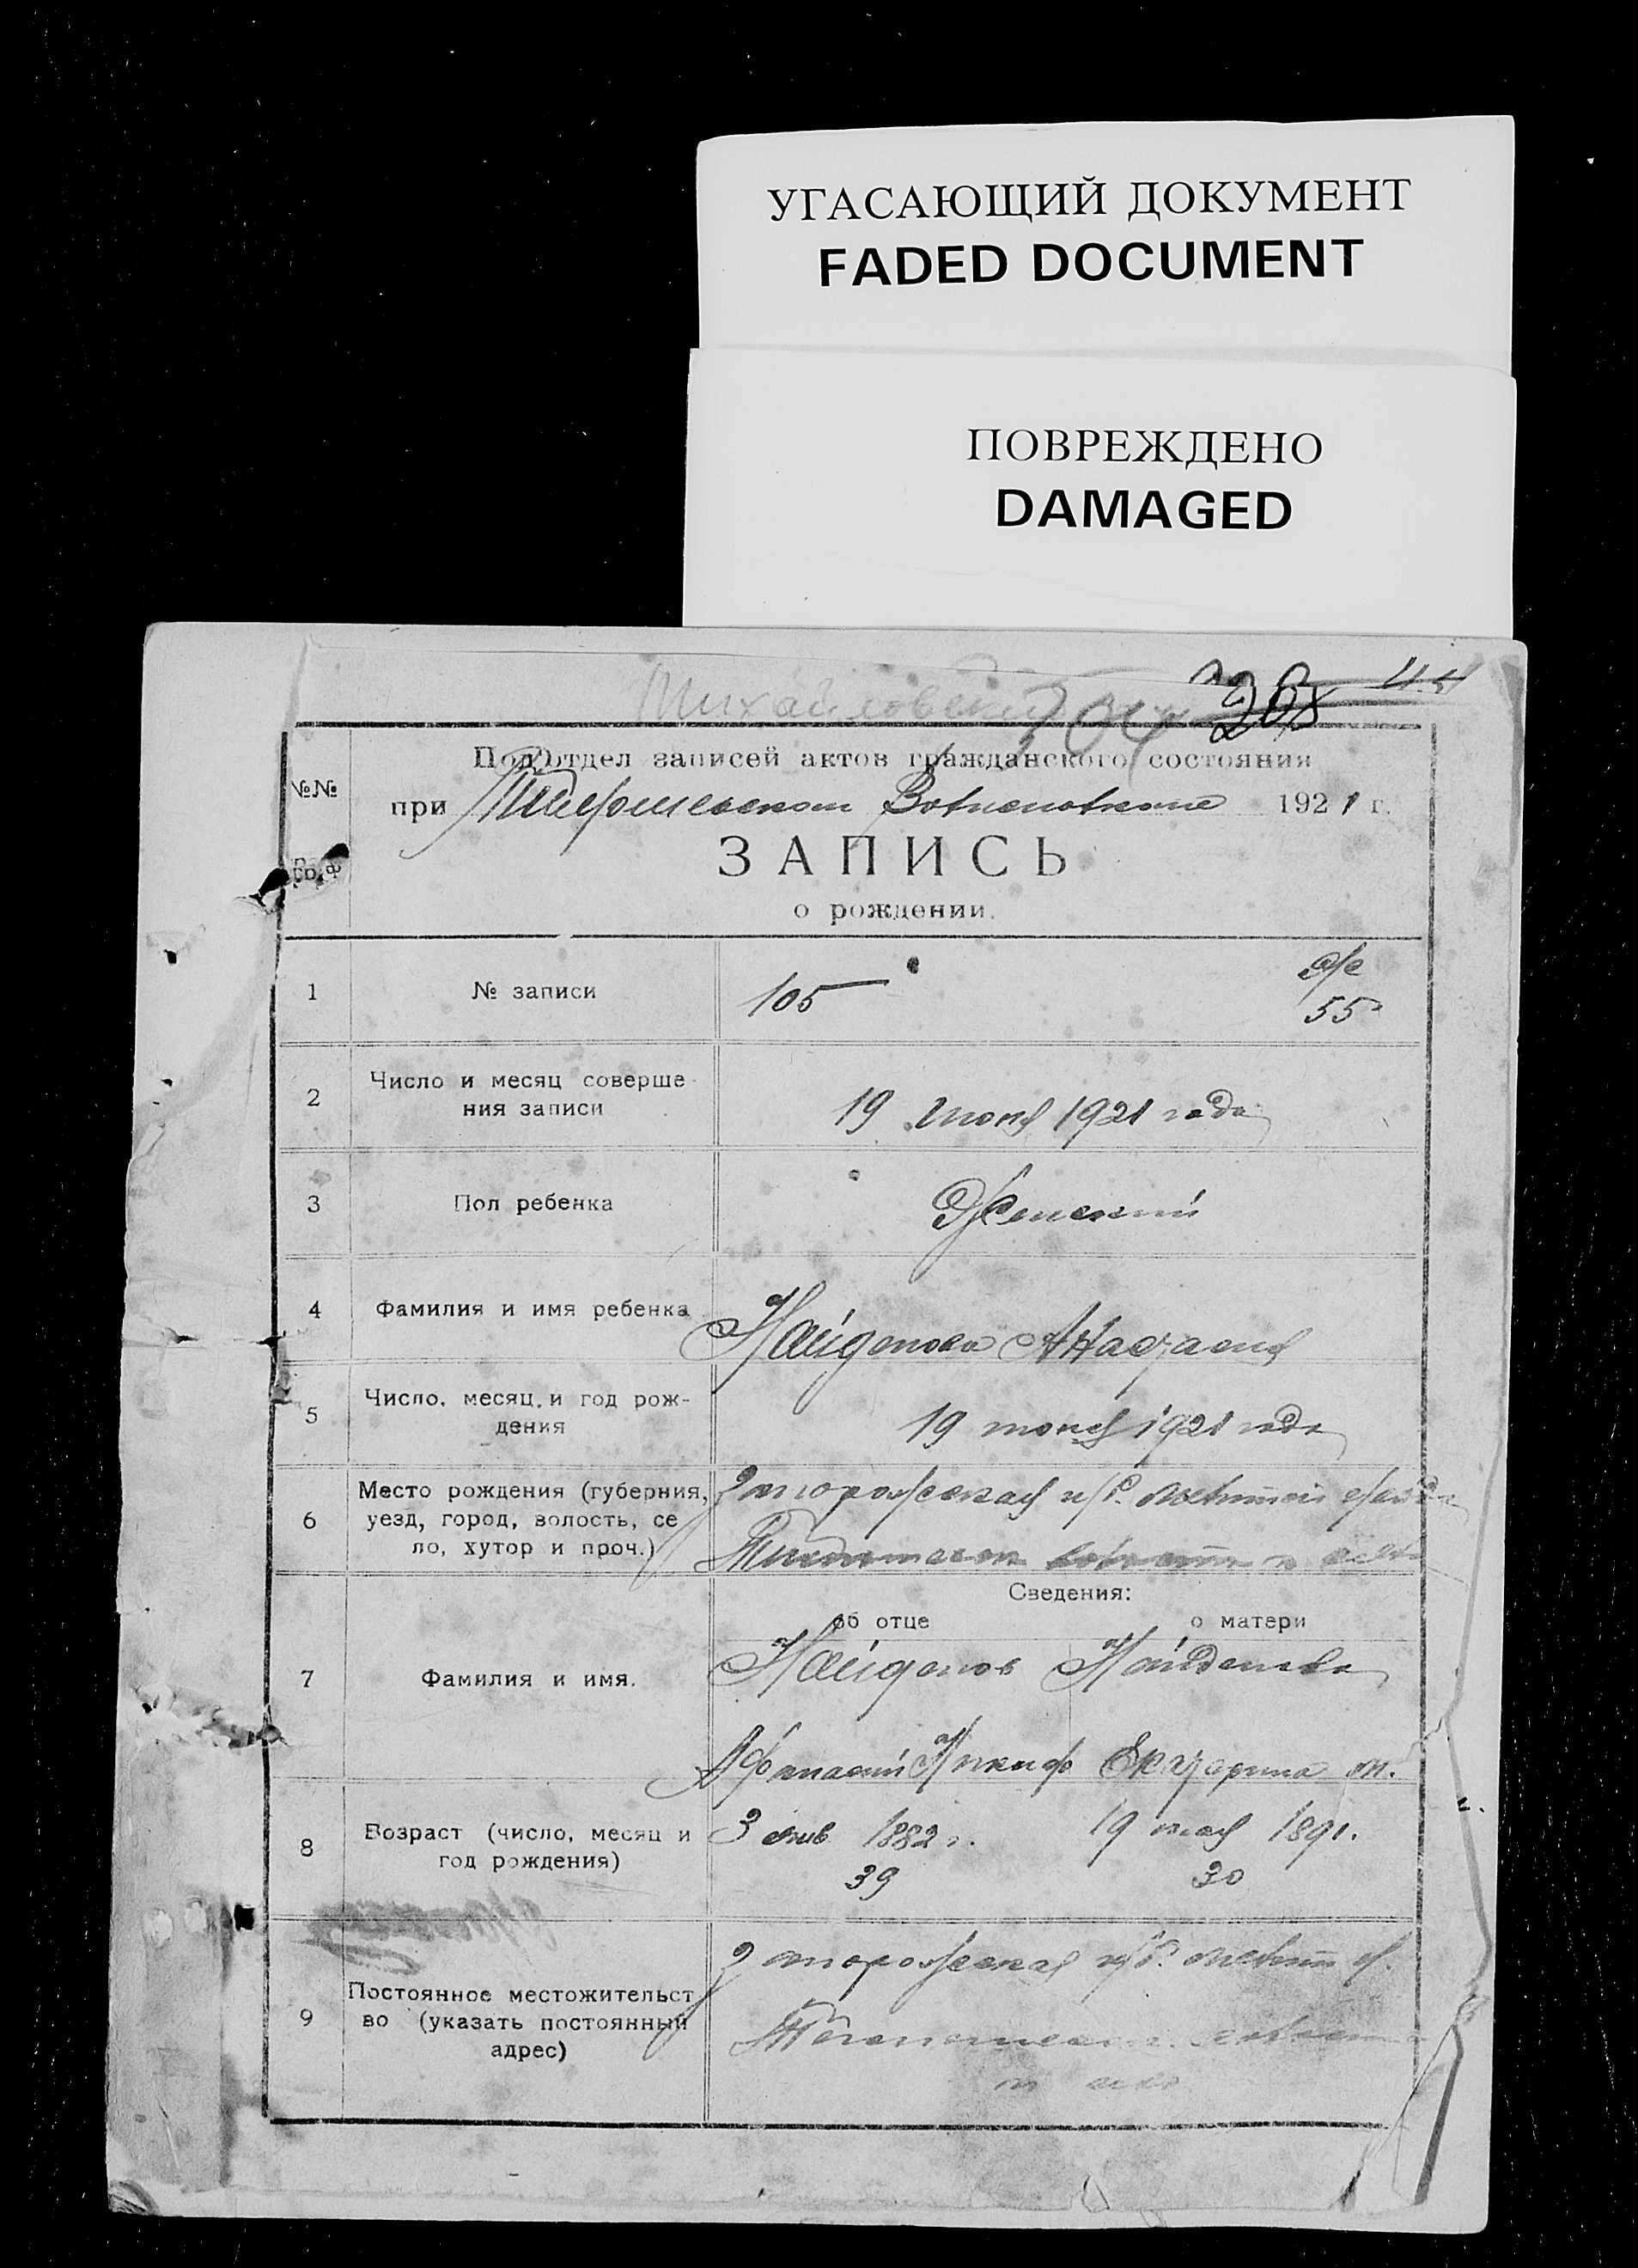 УГАСАЮЩИЙ ДОКУМЕНТ
FADED DOCUMENT
ПОВРЕЖДЕНО
DAMAGED
Михайловский
304 208 44
Подотдел записей актов гражданского состояния
№№
при 1921 г.
граф
ЗАПИСЬ
о рождении.
Же
1 № записи 105 55
2 Число и месяц соверше-
ния записи 19 Июня 1921 года
3 Пол ребенка Женский
4 Фамилия и имя ребенка Найденова Анастасия
5 Число, месяц, и год рож-
дения 19 июня 1921 года
6 Место рождения (губерния,
уезд, город, волость, се
ло, хутор и проч.)
Запорожская губ.
Сведения:
об отце о матери
7 Фамилия и имя. Найденов Найденова
Афанасий Никиф Екатерина
8 Возраст (число, месяц и
год рождения) 3 янв 1882 г. 19 мая 1891.
39 30
9 Постоянное местожительст
во (указать постоянный
адрес)
Запорожская губ.